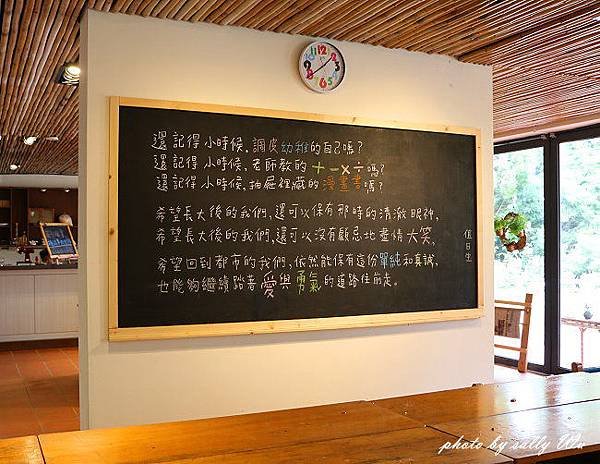 還記得小時候,調皮幼稚的自己嗎?
還記得小時候,老師教的+-×÷嗎?
還記得小時候,抽屜裡藏的漫畫書嗎?
希望長大後的我們,還可以保有那時的清澈眼神,
希望長大後的我們,還可以沒有顧忌地盡情大笑,
希望回到都市的我們,依然能保有這份單純和真誠,
也能夠繼續踏著愛與勇氣的道路往前走。
值日生
photo by sally Wu